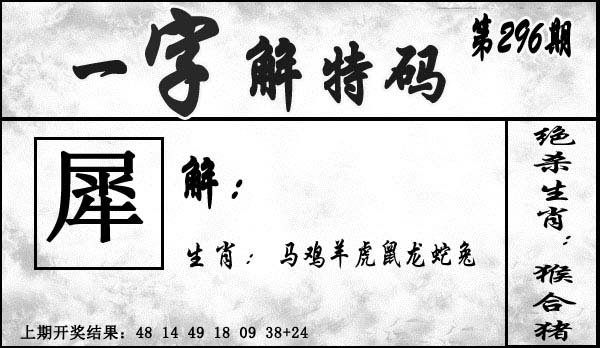 一字解特码
第296期
犀
解：
生肖：马鸡羊虎鼠龙蛇兔
绝杀生肖：猴合猪
上期开奖结果：48 14 49 18 09 38+24